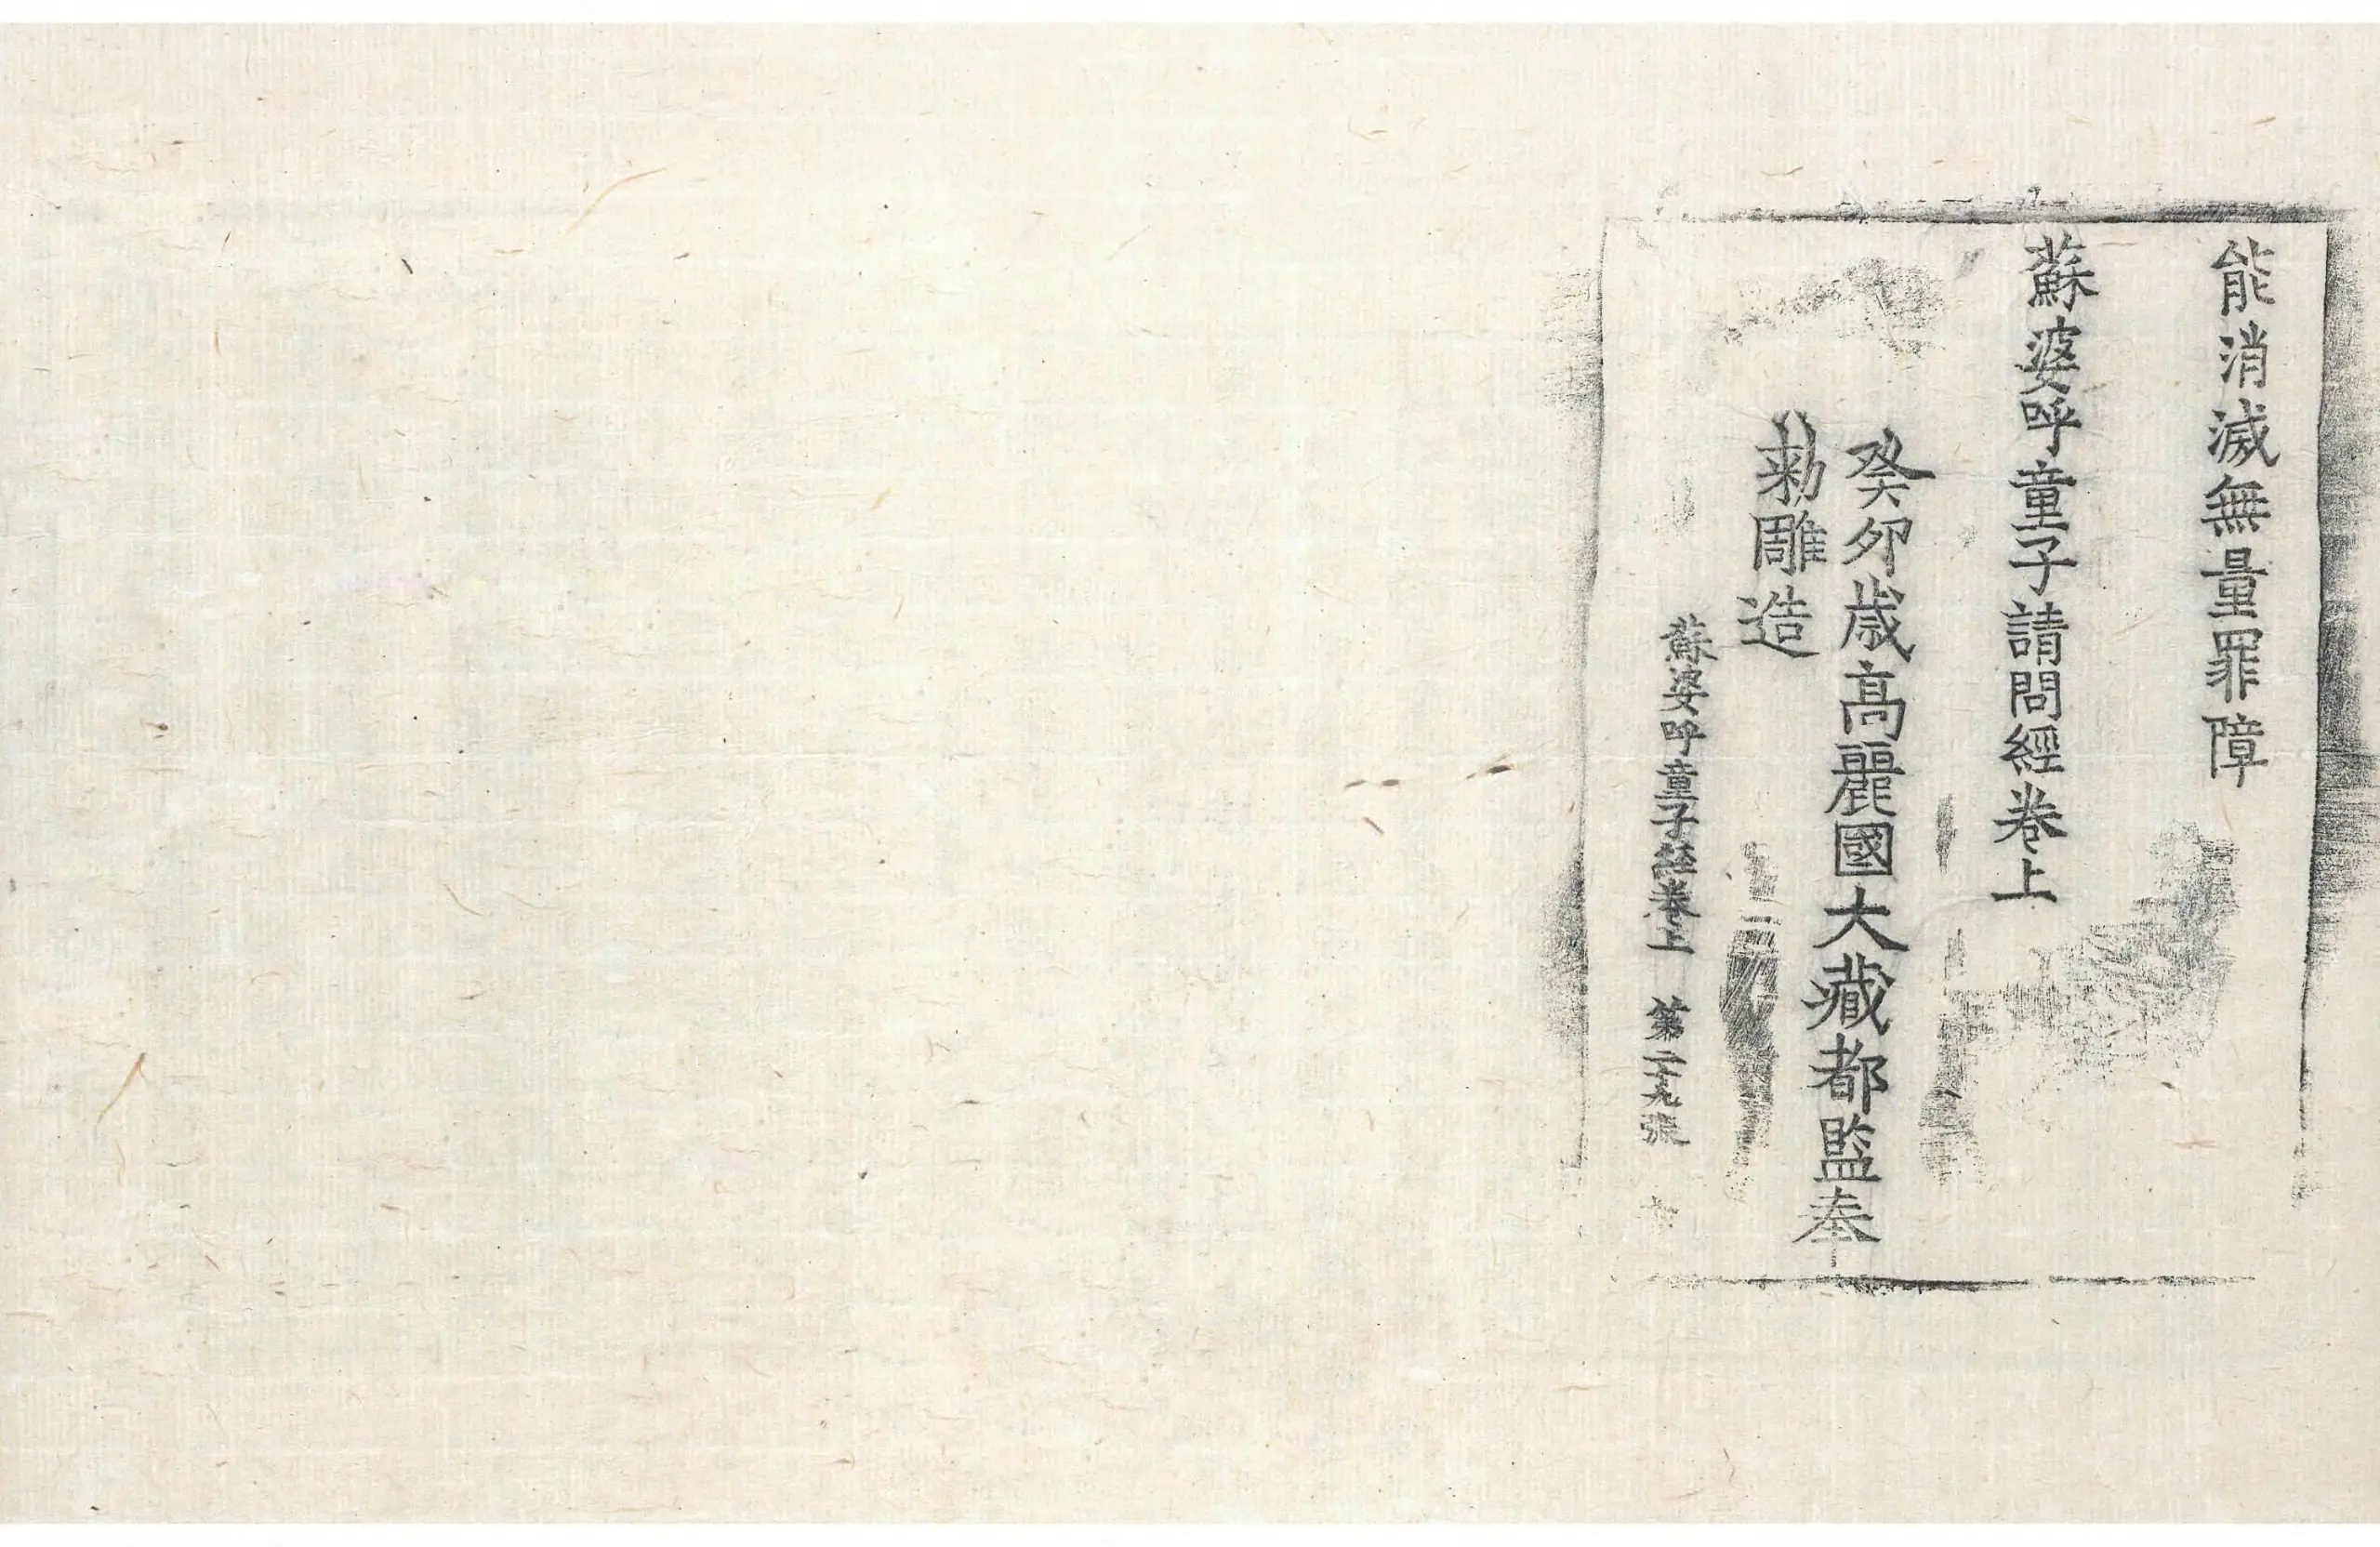 能消滅無量罪障
蘇婆呼童子請問經卷上
癸卯歲高麗國大藏都監奉
勅雕造
蘇婆呼童子經卷上 第二十九張